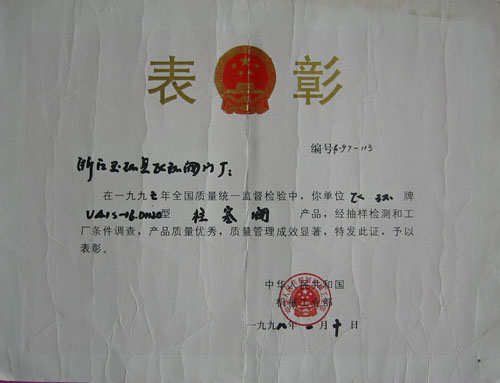 表彰
编号6-97-113
浙江玉环县飞环阀门厂:
在一九九七年全国质量统一监督检验中,你单位飞环牌
U41S-16.DN20型柱塞阀产品,经抽样检测和工
厂条件调查,产品质量优秀,质量管理成效显著,特发此证,予以
表彰。
中华人民共和国
机械工业部
一九九八年一月十日